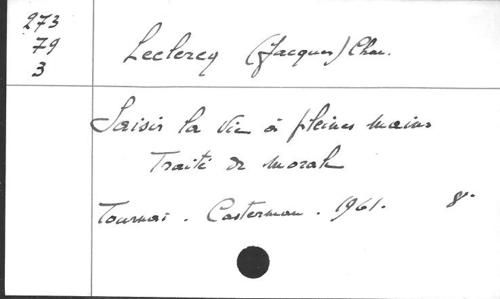 273
79
3
Leclercq (Jacques) Chan.
Saisir la vie à pleines mains
Traité de morale
Tournai. Casterman. 1961. 8°